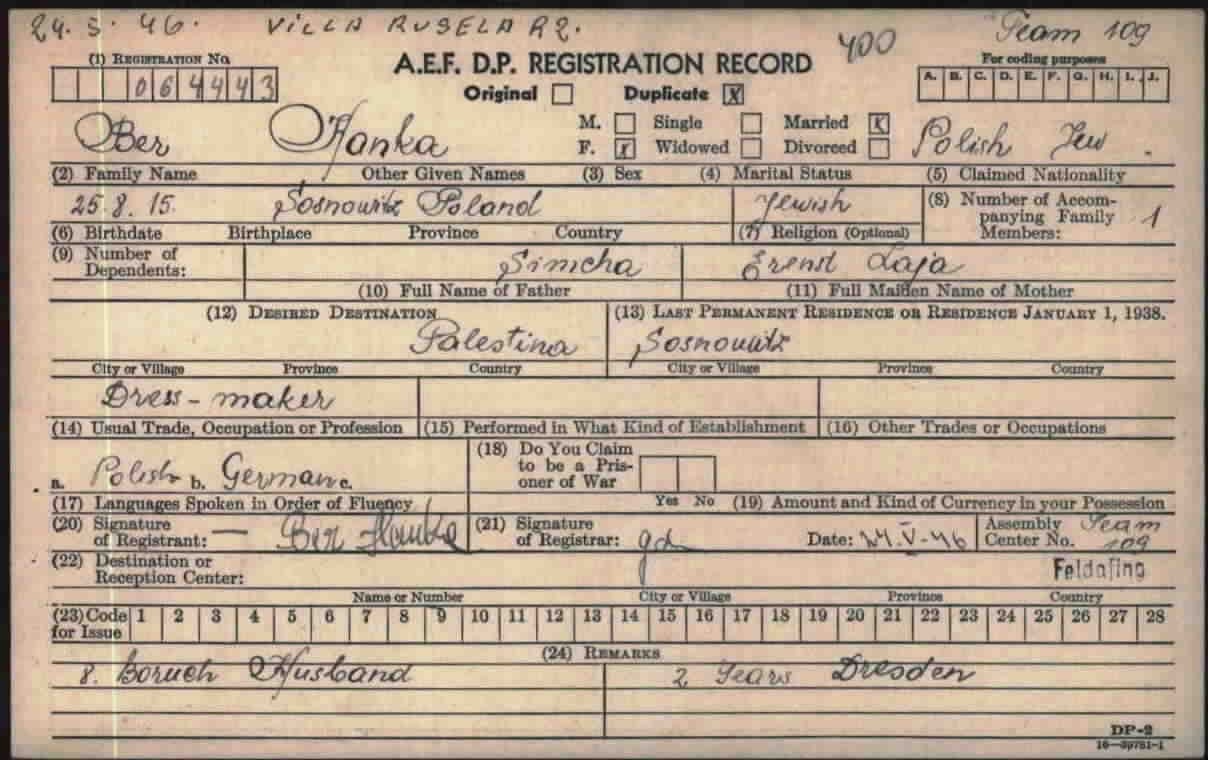 24. 5. 46. VILLA RUSELA R2. 400 Team 109
(1) REGISTRATION No. A.E.F. D.P. REGISTRATION RECORD For coding purposes
064443 Original Duplicate X A. B. C. D. E. F. G. H. I. J.
Ber Hanka M. Single Married X Polish Jew.
F. X Widowed Divorced
(2) Family Name Other Given Names (3) Sex (4) Marital Status (5) Claimed Nationality
25. 8. 15. Sosnowitz Poland Jewish (8) Number of Accompanying Family Members: 1
(6) Birthdate Birthplace Province Country (7) Religion (Optional)
(9) Number of Dependents: Simcha Erenst Laja
(10) Full Name of Father (11) Full Maiden Name of Mother
(12) DESIRED DESTINATION (13) LAST PERMANENT RESIDENCE OR RESIDENCE JANUARY 1, 1938.
Palestina Sosnowitz
City or Village Province Country City or Village Province Country
Dress-maker
(14) Usual Trade, Occupation or Profession (15) Performed in What Kind of Establishment (16) Other Trades or Occupations
a. Polish b. German c. (18) Do You Claim to be a Prisoner of War
(17) Languages Spoken in Order of Fluency Yes No (19) Amount and Kind of Currency in your Possession
(20) Signature of Registrant: — Ber Hanka (21) Signature of Registrar: Date: 24. V-46 Assembly Center No. Team 109
(22) Destination or Reception Center: Feldafing
Name or Number City or Village Province Country
(23) Code for Issue 1 2 3 4 5 6 7 8 9 10 11 12 13 14 15 16 17 18 19 20 21 22 23 24 25 26 27 28
(24) REMARKS
8. Boruch Husband 2 Years Dresden
DP-2
16—39781-1